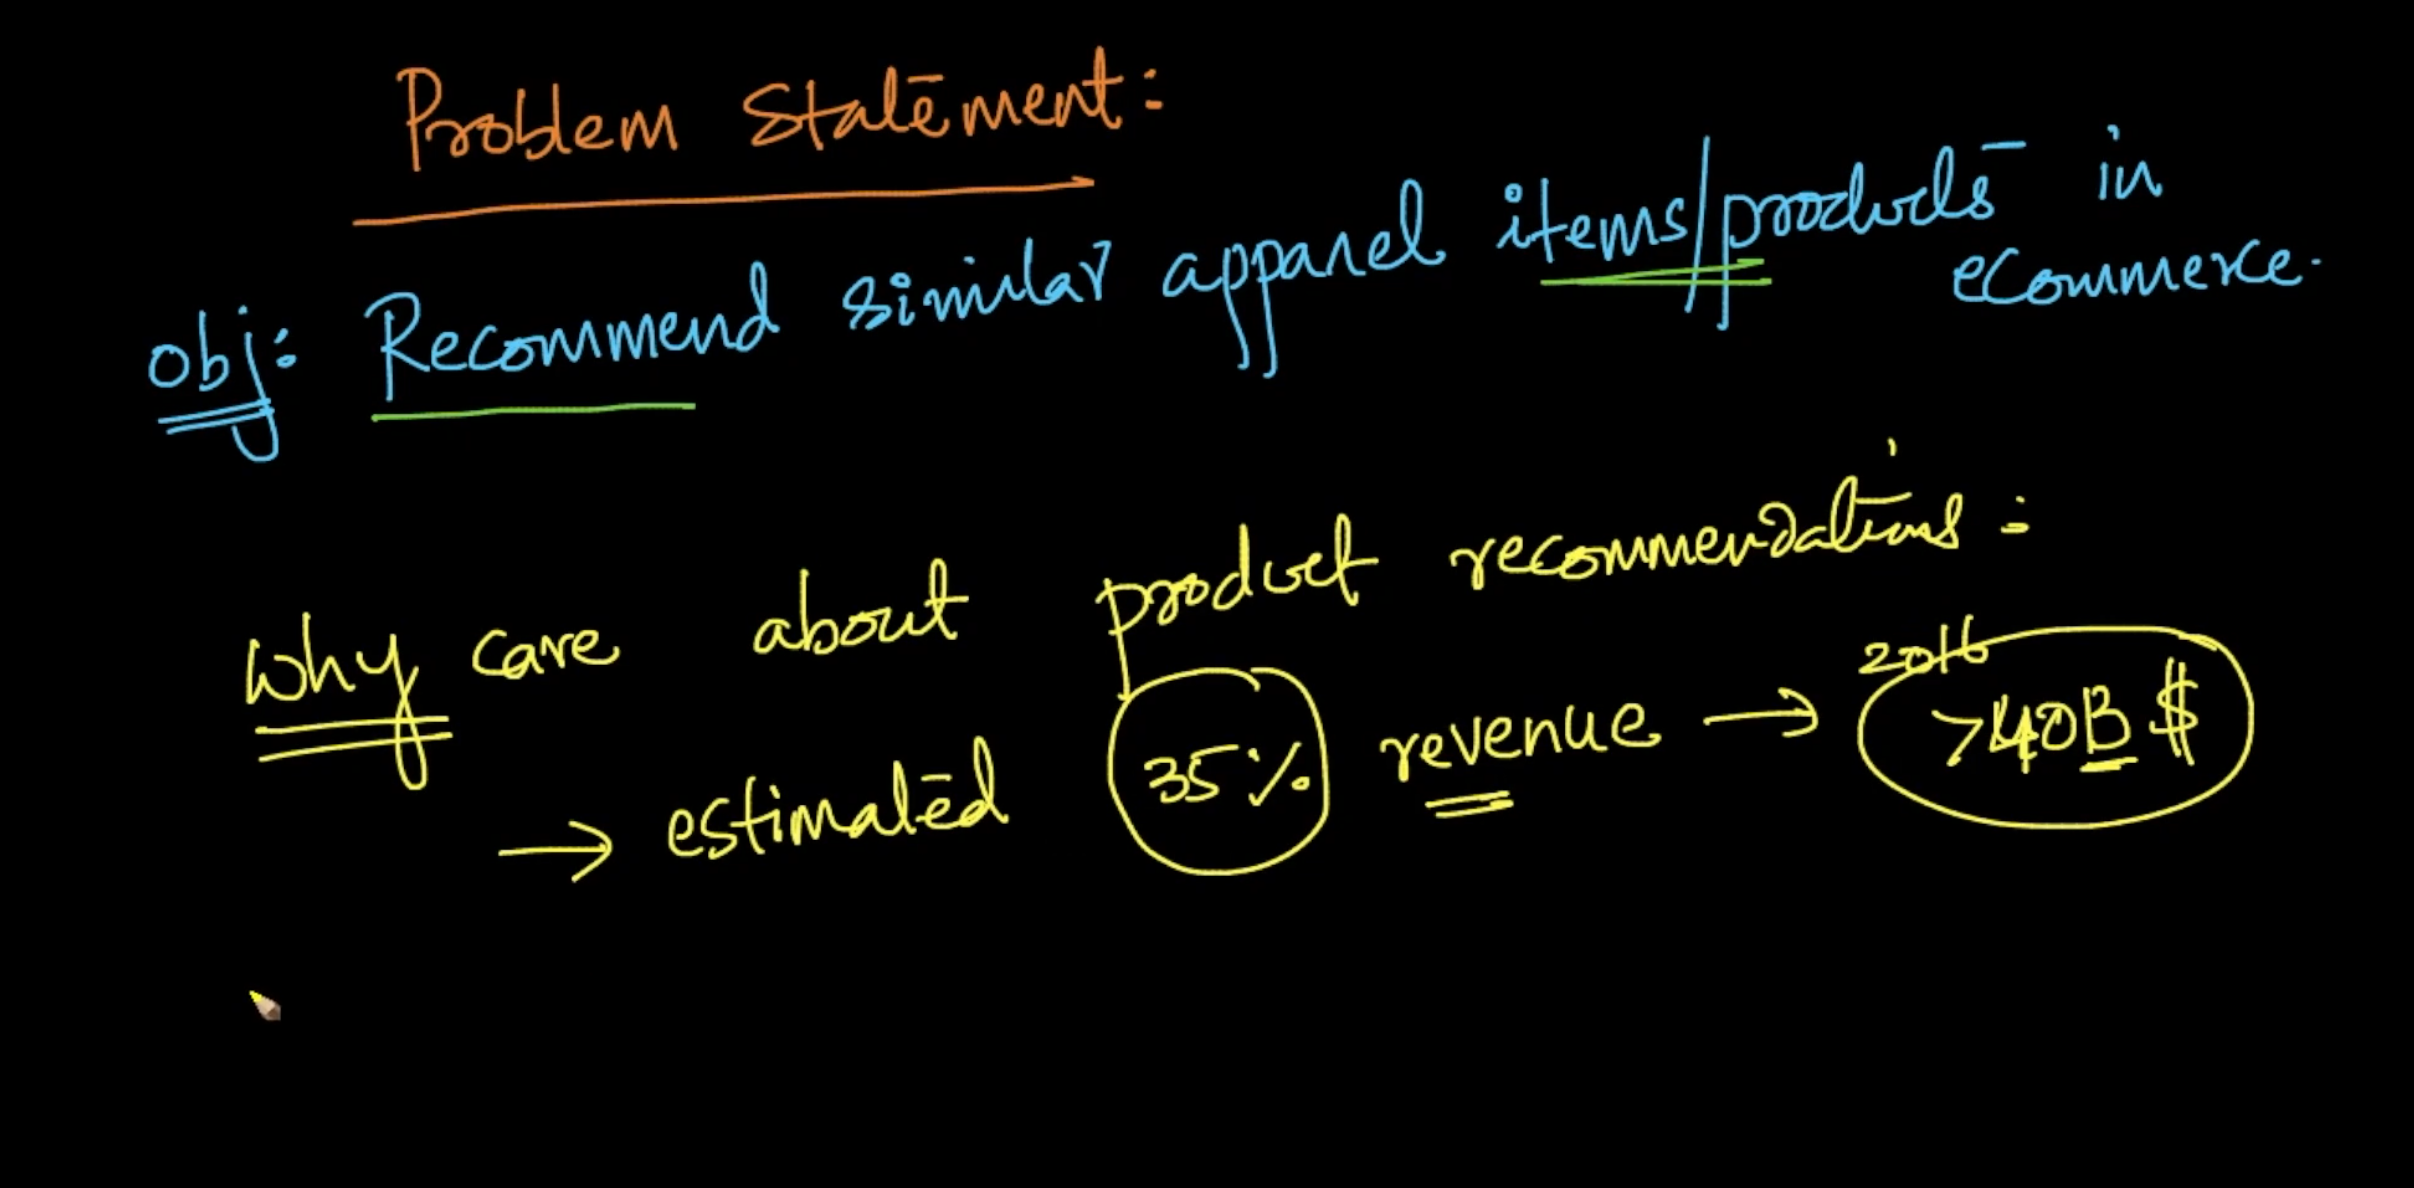 Problem Statement:
obj: Recommend similar apparel items/products in
ecommerce.
Why care about product recommendations:
2016
→ estimated 35% revenue → >40B $